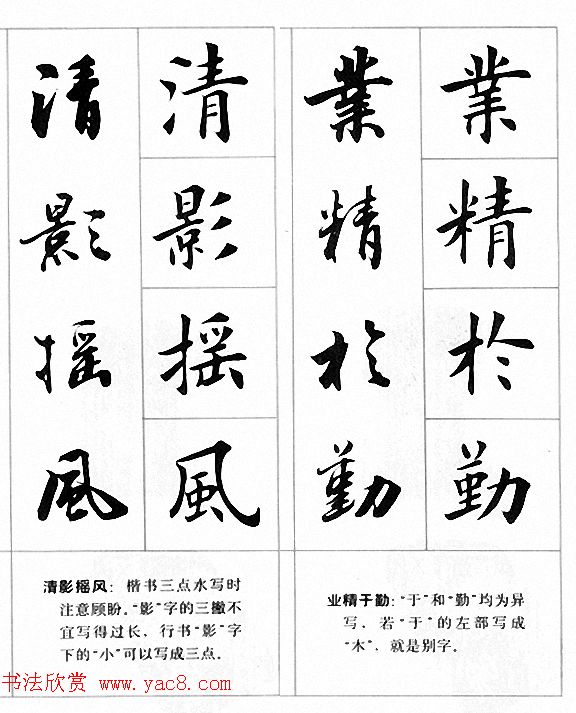 業精於勤
業精於勤
业精于勤：“于”和“勤”均为异
写，若“于”的左部写成
“木”，就是别字。
清影摇風
清影摇風
清影摇风：楷书三点水写时
注意顾盼。“影”字的三撇不
宜写得过长，行书“影”字
下的“小”可以写成三点。
书法欣赏 www.yac8.com